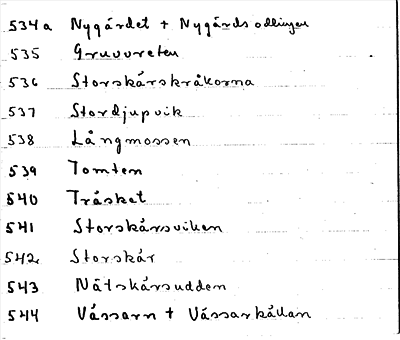 534a Nygärdet + Nygärdsodlingen
535 Gruvvreten
536 Storskärskråkorna
537 Stordjupvik
538 Långmossen
539 Tomten
540 Träsket
541 Storskärsviken
542 Storskär
543 Nätskärsudden
544 Vässarn + Vässarkällan